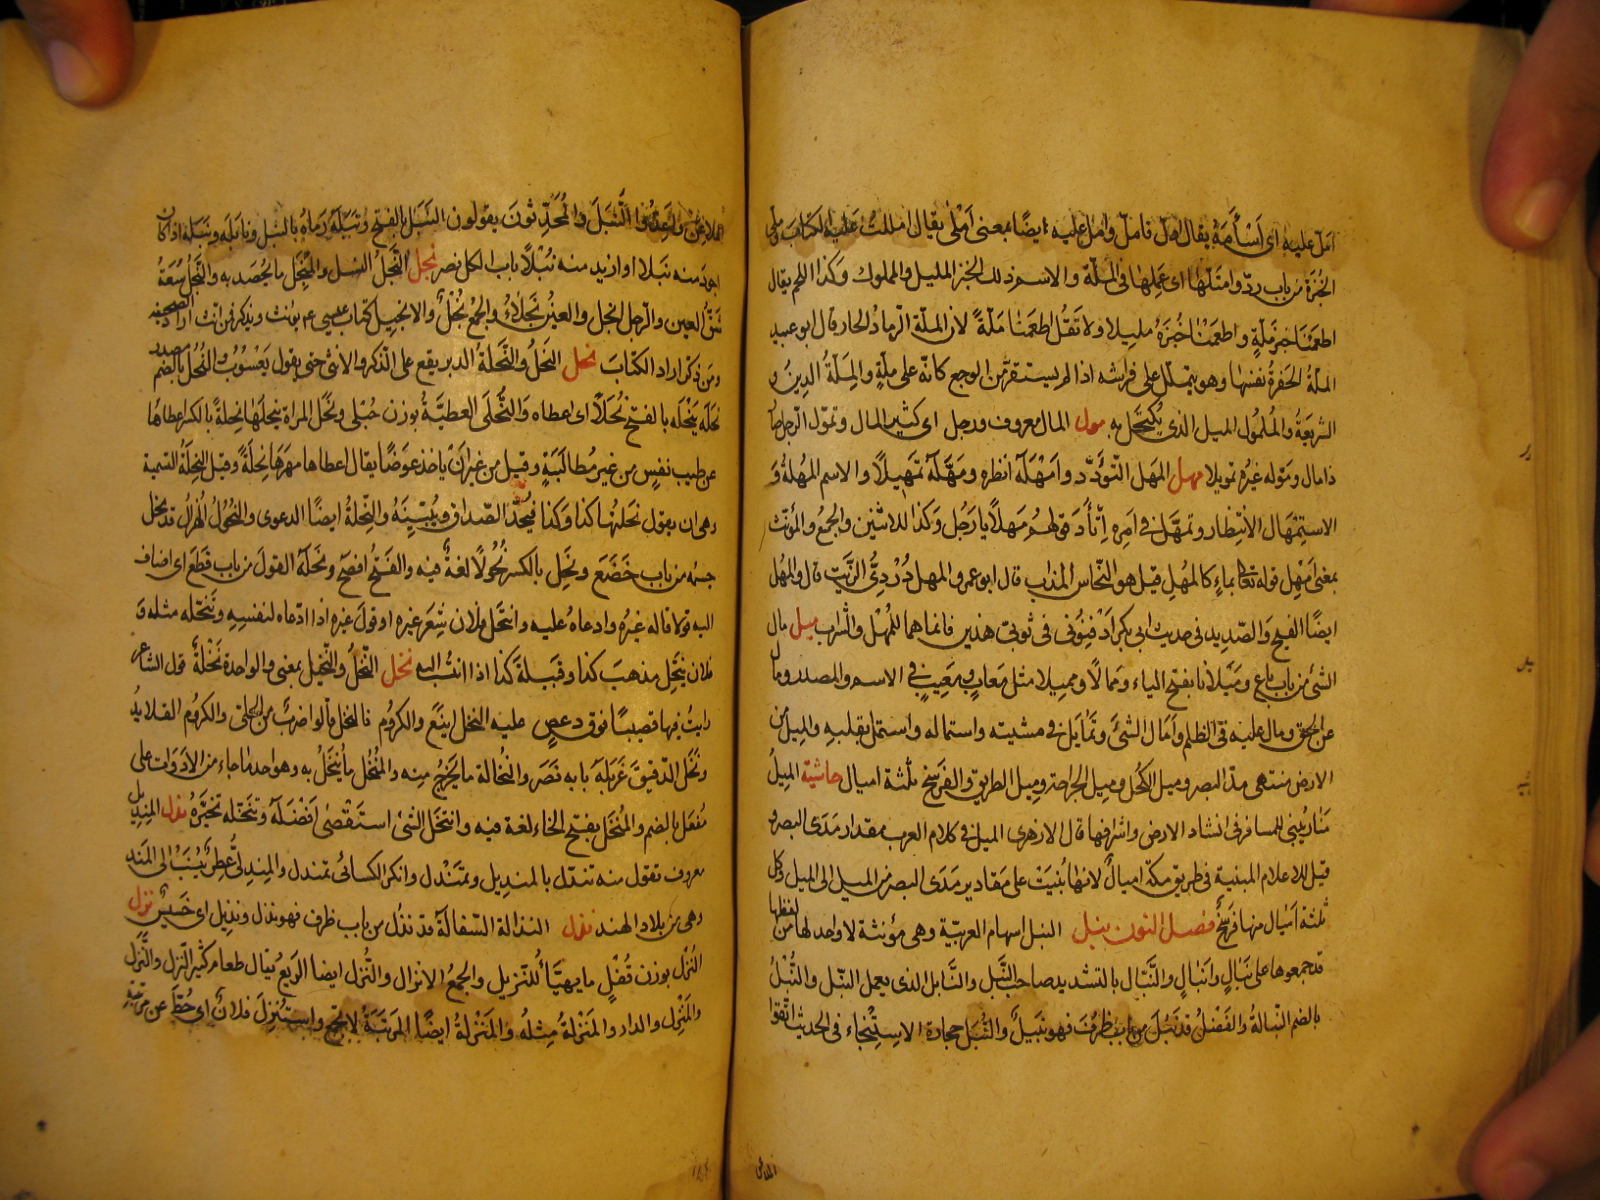 امل عليه اى اسأمه يقال امل فامل وامل عليه ايضا بمعنى املى يقال امللت عليه الكتاب ومل
الخبزة من باب رد وامتلها اى عملها فى الملة والاسم ذلك الخبز المليل والمملول وكذا اللحم يقال
اطعمنا خبز ملة واطعمنا خبزة مليلا ولا تقل اطعمنا ملة لان الملة الرماد الحار قال ابو عبيد
الملة الحفرة نفسها وهو يتململ على فراشه اذا لم يستقر من الوجع كانه على ملة والملة الدين و
الشريعة والملمول الميل الذى يكتحل به مول المال معروف ورجل اى كثير المال وتمول الرجل صار
ذا مال وموله غيره تمويلا مهل المهل التؤدد وامهله انظره ومهله تمهيلا والاسم المهلة و
الاستمهال الانتظار وتمهل فى امره اتأد وقولهم مهلا يا رجل وكذا للاثنين والجمع والمؤنث
بمعنى امهل قوله تعالى بماء كالمهل قيل هو النحاس المذاب قال ابو عمرو المهل دردى الزيت قال والمهل
ايضا القيح والصديد فى حديث ابى بكر ادفنونى فى ثوبى هذين فانما هما للمهل والتراب ميل مال
الشئ من باب باع وميلانا بفتح الياء وممالا ومميلا مثل معاب ومعيب فى الاسم والمصدر ومال
عن الحق ومال عليه فى الظلم وامال الشئ وتمايل فى مشيته واستماله واستمال بقلبه والميل من
الارض منتهى مد البصر وميل الكحل وميل الجراحة وميل الطريق والفرسخ ثلثة اميال حاشية الميل
منار يبنى للمسافر فى انشاد الارض واشرافها قال الازهرى الميل فى كلام العرب مقدار مدى البصر و
قيل للاعلام المبنية فى طريق مكة اميال لانها بنيت على مقادير مدى البصر من الميل الى الميل وكل
ثلثة اميال منها فرسخ فصل النون نبل النبل السهام العربية وهى مؤنثة لا واحد لها من لفظها
قد جمعوها على نبال وانبال والنبال بالتشديد صاحب النبل والنابل الذى يعمل النبل والنبل
بالضم النبالة والفضل قد نبل من باب ظرف فهو نبيل والنبل حجارة الاستنجاء فى الحديث اتقوا
الملاعن واعدوا النبل والمحدثون يقولون النبل بالفتح ونبله رماه بالنبل ونابله ونبله اذا كان
اجود منه نبلا او ازيد منه نبلا باب الكل نصر نجل النجل النسل والمنجل ما يحصد به والنجل سعة
شق العين والرجل انجل والعين نجلاء والجمع نجل والانجيل كتاب عيسى عم يؤنث ويذكر فمن انث اراد الصحيفة
ومن ذكر اراد الكتاب نحل النحل والنحلة الدبر يقع على الذكر والانثى حتى يقول يعسوب والنحل بالضم مصدر
نحله ينحله بالفتح نحلا اى اعطاه والنحلى العطية بوزن حبلى ونحل المراة ينحلها نحلة بالكسر اعطاها
عن طيب نفس من غير مطالبة وقيل من غير ان ياخذ عوضا يقال اعطاها مهرها نحلة وقيل النحلة التسمية
وهى ان يقول نحلتها كذا وكذا فيحد الصداق ويبينه والنحلة ايضا الدعوى والنحول الهزال قد نحل
جسمه من باب خضع ونحل بالكسر نحولا لغة فيه والفتح افصح ونحله القول من باب قطع اى اضاف
اليه قولا قاله غيره وادعاه عليه وانتحل فلان شعر غيره او قول غيره اذا ادعاه لنفسه وتنحله مثله و
فلان ينتحل مذهب كذا وقبيلة كذا اذا انتسب اليه نخل النخل والنخيل بمعنى والواحدة نخلة قول الشاعر
رايت فيها قضيبا فوق دعص عليه النخل اينع والكروم فالنخل قالوا ضرب من الحلى والكروم القلايد
ونخل الدقيق غربله بابه نصر والنخالة ما يخرج منه والمنخل ما ينخل به وهو احد ما جاء من الادوات على
مفعل بالضم والمنخل بفتح الخاء لغة فيه وانتخل الشئ استقصى افضله وتنخله تخيره ندل المنديل
معروف تقول منه تندل بالمنديل وتمندل وانكر الكسائى تمندل والمندلى عطر ينسب الى المندل
وهى من بلاد الهند نذل النذالة السفالة قد نذل من باب ظرف فهو نذل ونذيل اى خسيس نزل
النزل بوزن قفل ما يهيأ للنزيل والجمع الانزال والنزل ايضا الريع يقال طعام كثير النزل والنزل
والمنزل والدار والمنزلة مثله والمنزلة ايضا المرتبة لا تجمع واستنزل فلان اى حط عن مرتبته